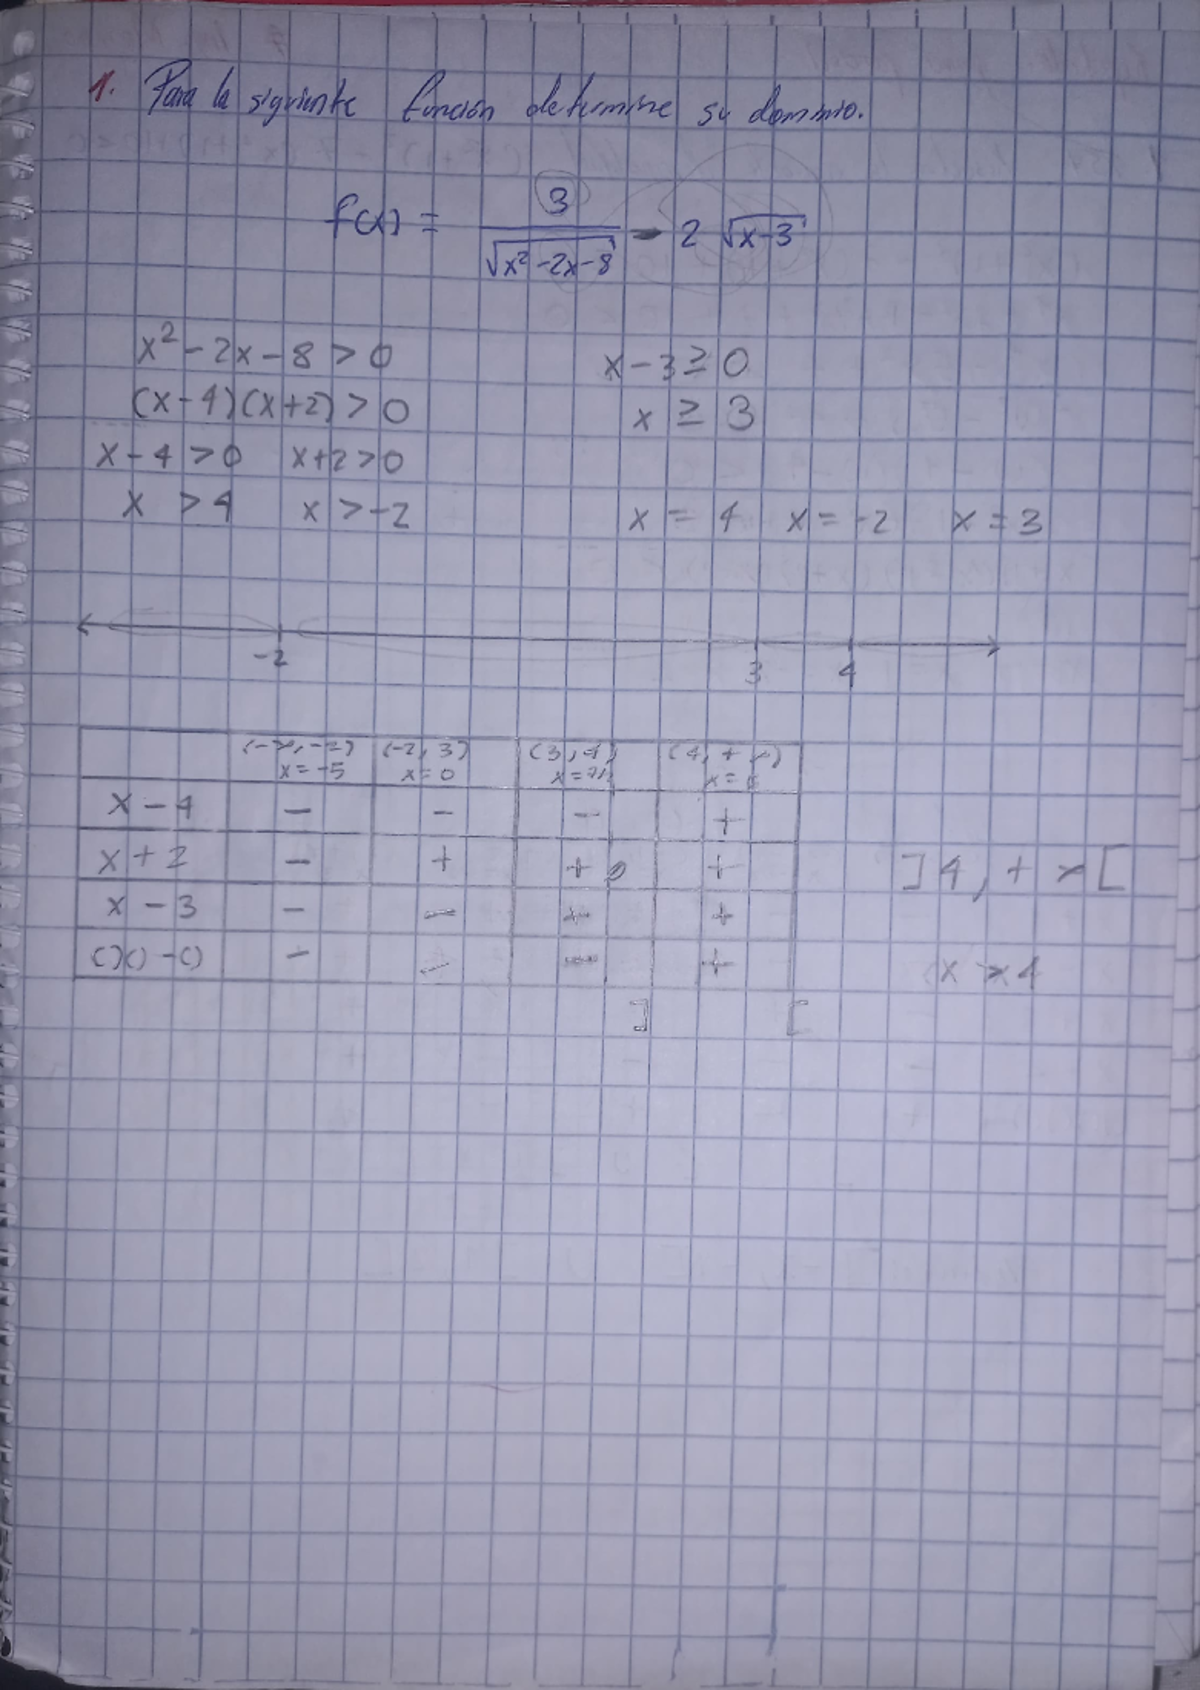 1. Para la siguiente función determine su dominio.
f(x) = 3 / √(x² - 2x - 8) - 2 √(x-3)
x² - 2x - 8 > 0    x - 3 ≥ 0
(x - 4)(x + 2) > 0    x ≥ 3
x - 4 > 0    x + 2 > 0
x > 4    x > -2    x = 4    x = -2    x = 3
-2    3    4
(-∞, -2)    (-2, 3)    (3, 4)    (4, +∞)
x = -5    x = 0
x - 4    -    -    -    +
x + 2    -    +    +    +    ]4, +∞[
x - 3    -    -    +    +
()() - ()    -    -    -    +    x > 4
]    [